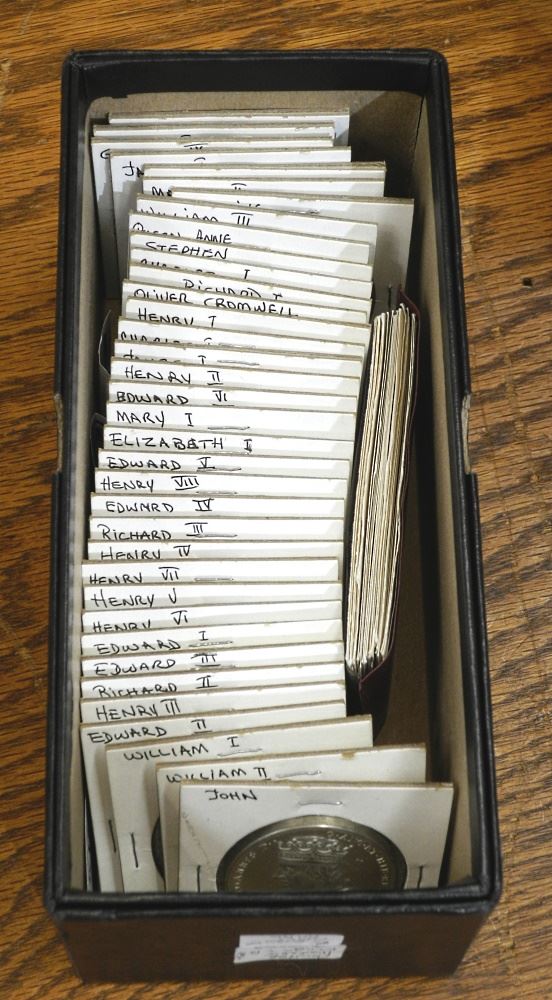 WILLIAM III
QUEEN ANNE
STEPHEN
I
RICHARD I
OLIVER CROMWELL
HENRY I
I
HENRY II
EDWARD VI
MARY I
ELIZABETH I
EDWARD V
HENRY VIII
EDWARD IV
RICHARD III
HENRY IV
HENRY VII
HENRY V
HENRY VI
EDWARD I
EDWARD III
RICHARD II
HENRY III
EDWARD II
WILLIAM I
WILLIAM II
JOHN